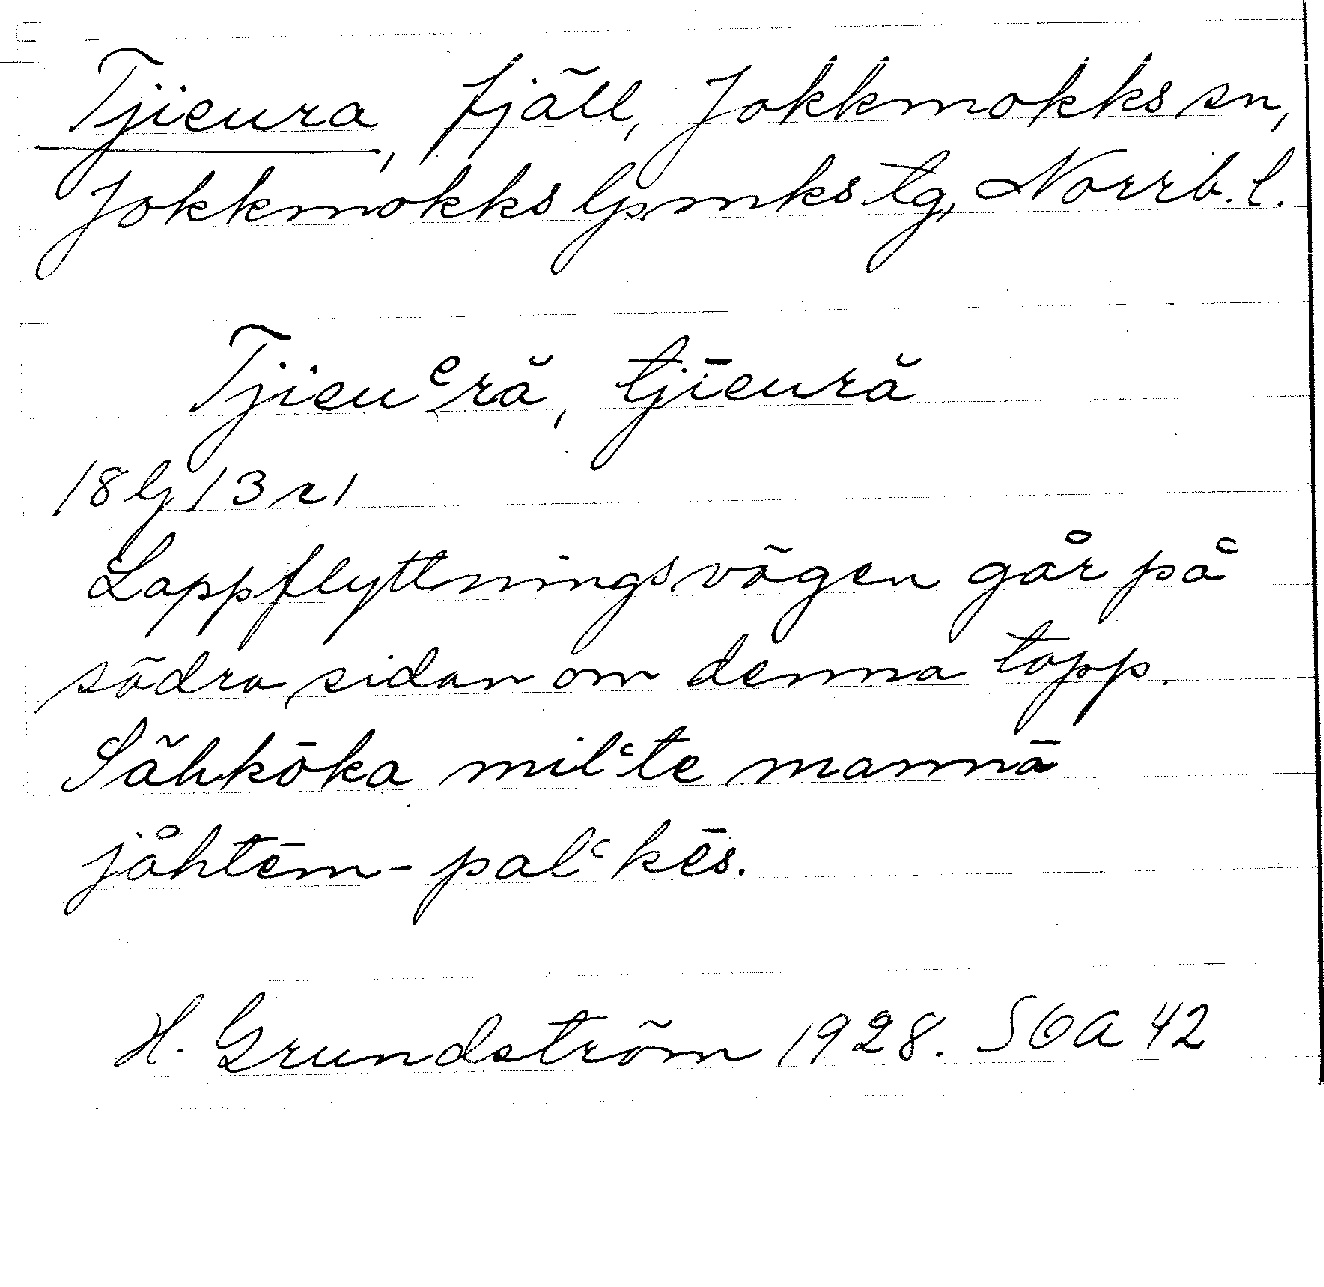 Tjieura, fjäll, Jokkmokks sn,
Jokkmokks lpmks tg, Norrb. l.
Tjieuᵉră, tjīeură
18 lj 13 r 1
Lappflyttningsvägen går på
södra sidan om denna topp.
Sähkōka milʿte mannā
jåhtēm-palʿkēs.
H. Grundström 1928. SOA 42